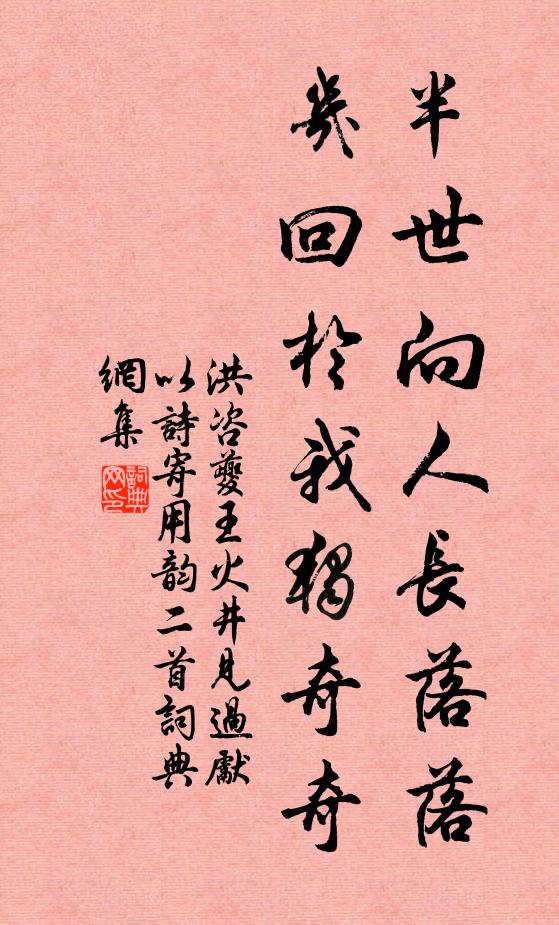 半世向人長落落
幾回於我獨奇奇
洪咨夔王火井見過獻
以詩寄用韵二首詞典
網集
詞典網印